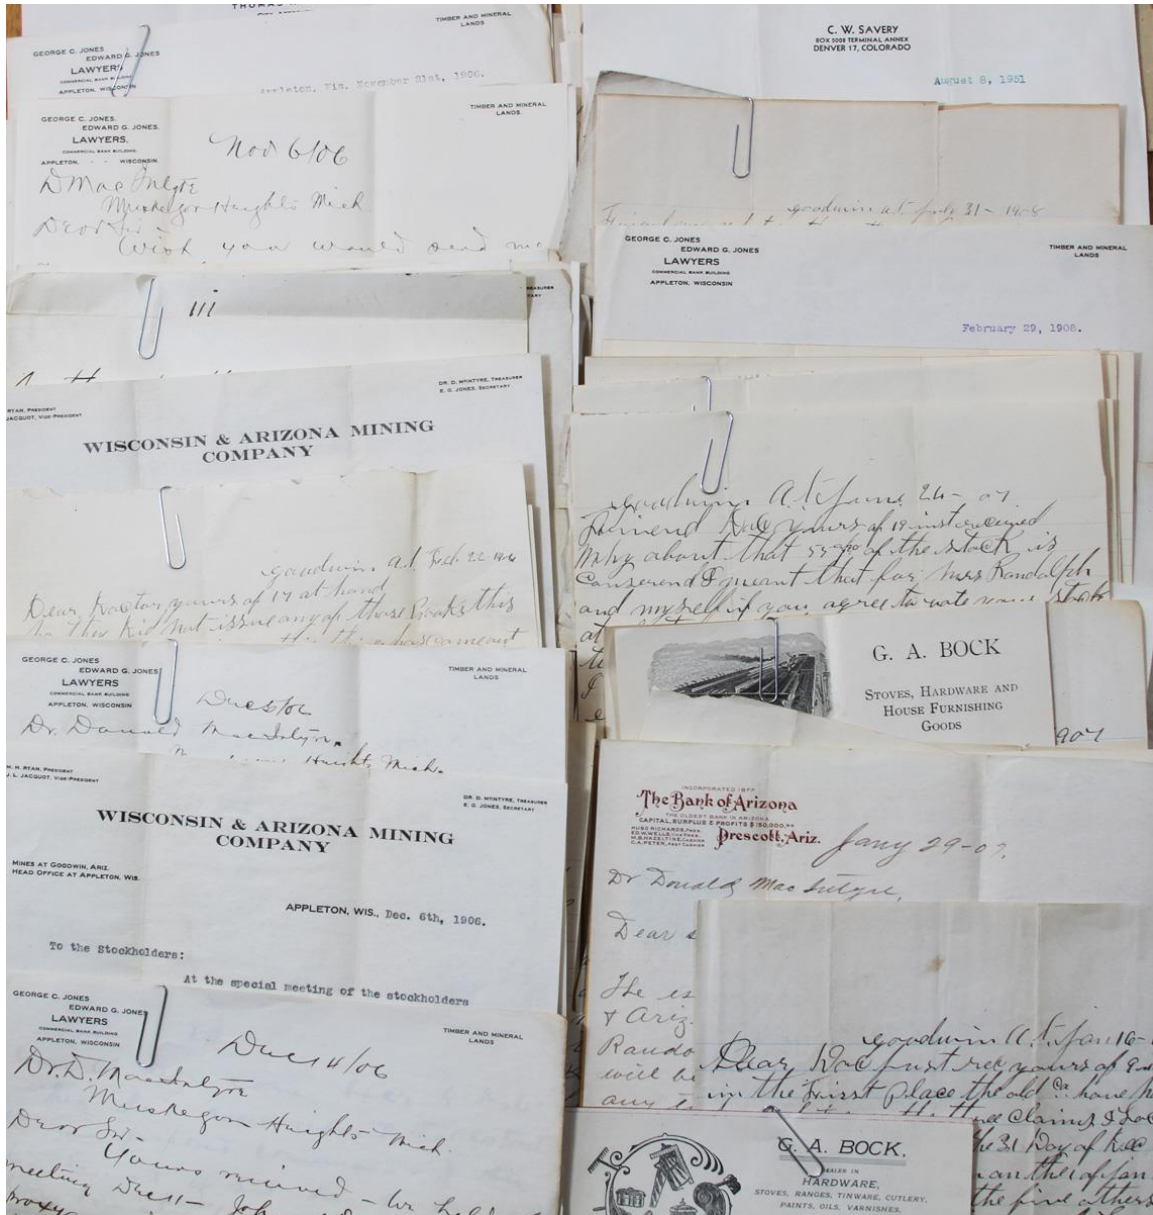 TIMBER AND MINERAL
LANDS
GEORGE C. JONES
EDWARD G. JONES
LAWYERS
COMMERCIAL BANK BUILDING
APPLETON, WISCONSIN
Appleton, Wis. November 21st, 1906.
GEORGE C. JONES.
EDWARD G. JONES.
LAWYERS.
COMMERCIAL BANK BUILDING.
APPLETON, - - WISCONSIN.
TIMBER AND MINERAL
LANDS.
Nov 6/06
D MacIntyre
Muskegon Heights Mich
Dear Sir-
Wish you would send me
iii
RYAN, PRESIDENT
JACQUOT, VICE-PRESIDENT
DR. D. MCINTYRE, TREASURER
E. G. JONES, SECRETARY
WISCONSIN & ARIZONA MINING
COMPANY
goodwin at Feb. 22
Dear Doctor, yours of 17 at hand
not issue any of those Books this
GEORGE C. JONES
EDWARD G. JONES
LAWYERS
COMMERCIAL BANK BUILDING
APPLETON, WISCONSIN
TIMBER AND MINERAL
LANDS
Dr. Donald MacIntyre.
Heights Mich.
H. H. RYAN, PRESIDENT
J. L. JACQUOT, VICE-PRESIDENT
DR. D. MCINTYRE, TREASURER
E. G. JONES, SECRETARY
WISCONSIN & ARIZONA MINING
COMPANY
MINES AT GOODWIN, ARIZ.
HEAD OFFICE AT APPLETON, WIS.
APPLETON, WIS., Dec. 6th, 1906.
To the Stockholders:
At the special meeting of the stockholders
GEORGE C. JONES
EDWARD G. JONES
LAWYERS
COMMERCIAL BANK BUILDING
APPLETON, WISCONSIN
TIMBER AND MINERAL
LANDS
Dec 14/06
Dr. D. MacIntyre
Muskegon Heights Mich.
Dear Sir-
Yours received - We held
meeting Dec
proxy
C. W. SAVERY
BOX 5008 TERMINAL ANNEX
DENVER 17, COLORADO
August 8, 1951
goodwin at July 31-
GEORGE C. JONES
EDWARD G. JONES
LAWYERS
COMMERCIAL BANK BUILDING
APPLETON, WISCONSIN
TIMBER AND MINERAL
LANDS
February 29, 1908.
goodwin A.t. June 24- 07
Friend Doc yours of 19 inst received
Why about that of the stock is
I meant that for Mrs Randolph
and myself if you agree to vote your stock
G. A. BOCK
STOVES, HARDWARE AND
HOUSE FURNISHING
GOODS
907
INCORPORATED 1877
The Bank of Arizona
THE OLDEST BANK IN ARIZONA
CAPITAL, SURPLUS & PROFITS $150,000.00
HUGO RICHARDS, PRES.
ED. W. WELLS, VICE PRES.
M. B. HAZELTINE, CASHIER
C. A. PETER, ASST CASHIER
Prescott, Ariz.
Jany 29-07.
Dr Donald MacIntyre,
Dear
The
& Ariz.
Rando
will be
any
goodwin A.t. Jan 16-
Dear Doc Just rec yours of
in the First Place the old Co. have
Claims I
the 31 Day of Dec
than the 1 of Jan
the five others
G. A. BOCK.
DEALER IN
HARDWARE,
STOVES, RANGES, TINWARE, CUTLERY,
PAINTS, OILS, VARNISHES.